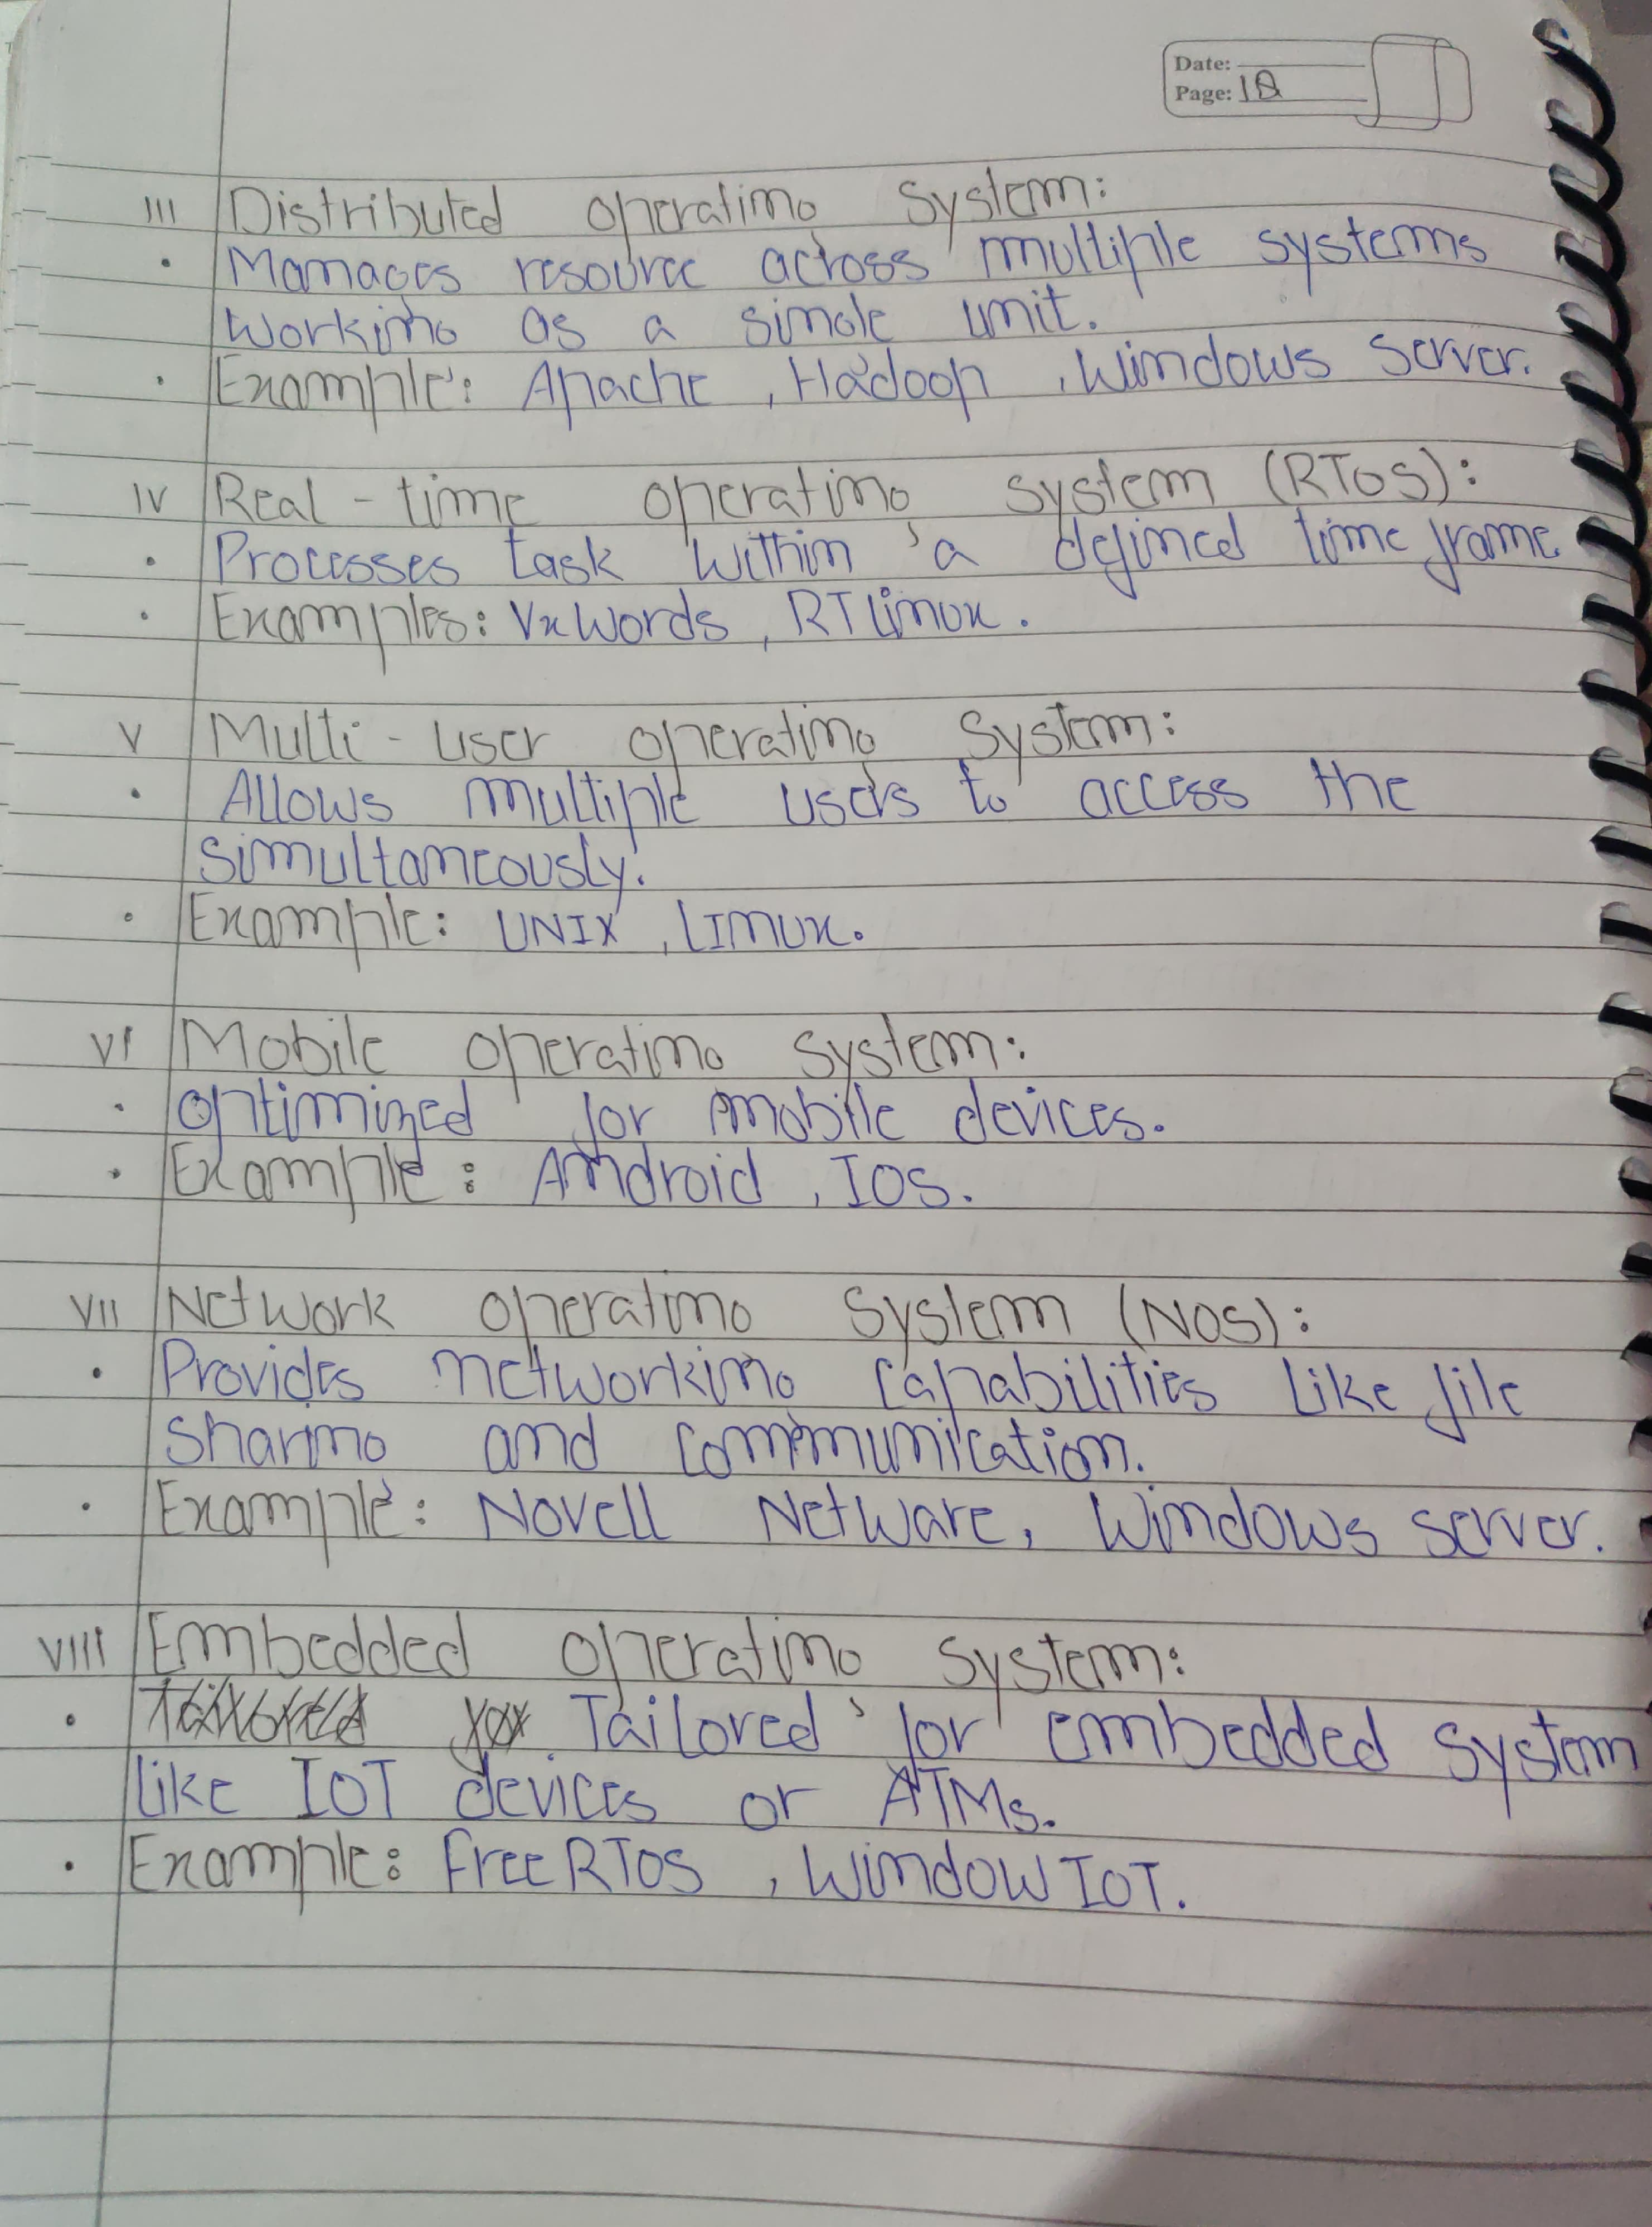 Date:
Page: 12
III Distributed operating system:
• Manages resource across multiple systems
working as a single unit.
• Example: Apache, Hadoop, Windows Server.
IV Real-time operating system (RTOS):
• Processes task within a defined time frame.
• Examples: VxWords, RTlinux.
V Multi-user operating system:
• Allows multiple users to access the
simultaneously.
• Example: UNIX, LInux.
VI Mobile operating system:
• optimized for mobile devices.
• Example: Android, IOS.
VII Network operating system (NOS):
• Provides networking capabilities like file
sharing and communication.
• Example: Novell NetWare, Windows server.
VIII Embedded operating system:
• Tailored for embedded system
like IOT devices or ATMs.
• Example: FreeRTOS, Window IOT.